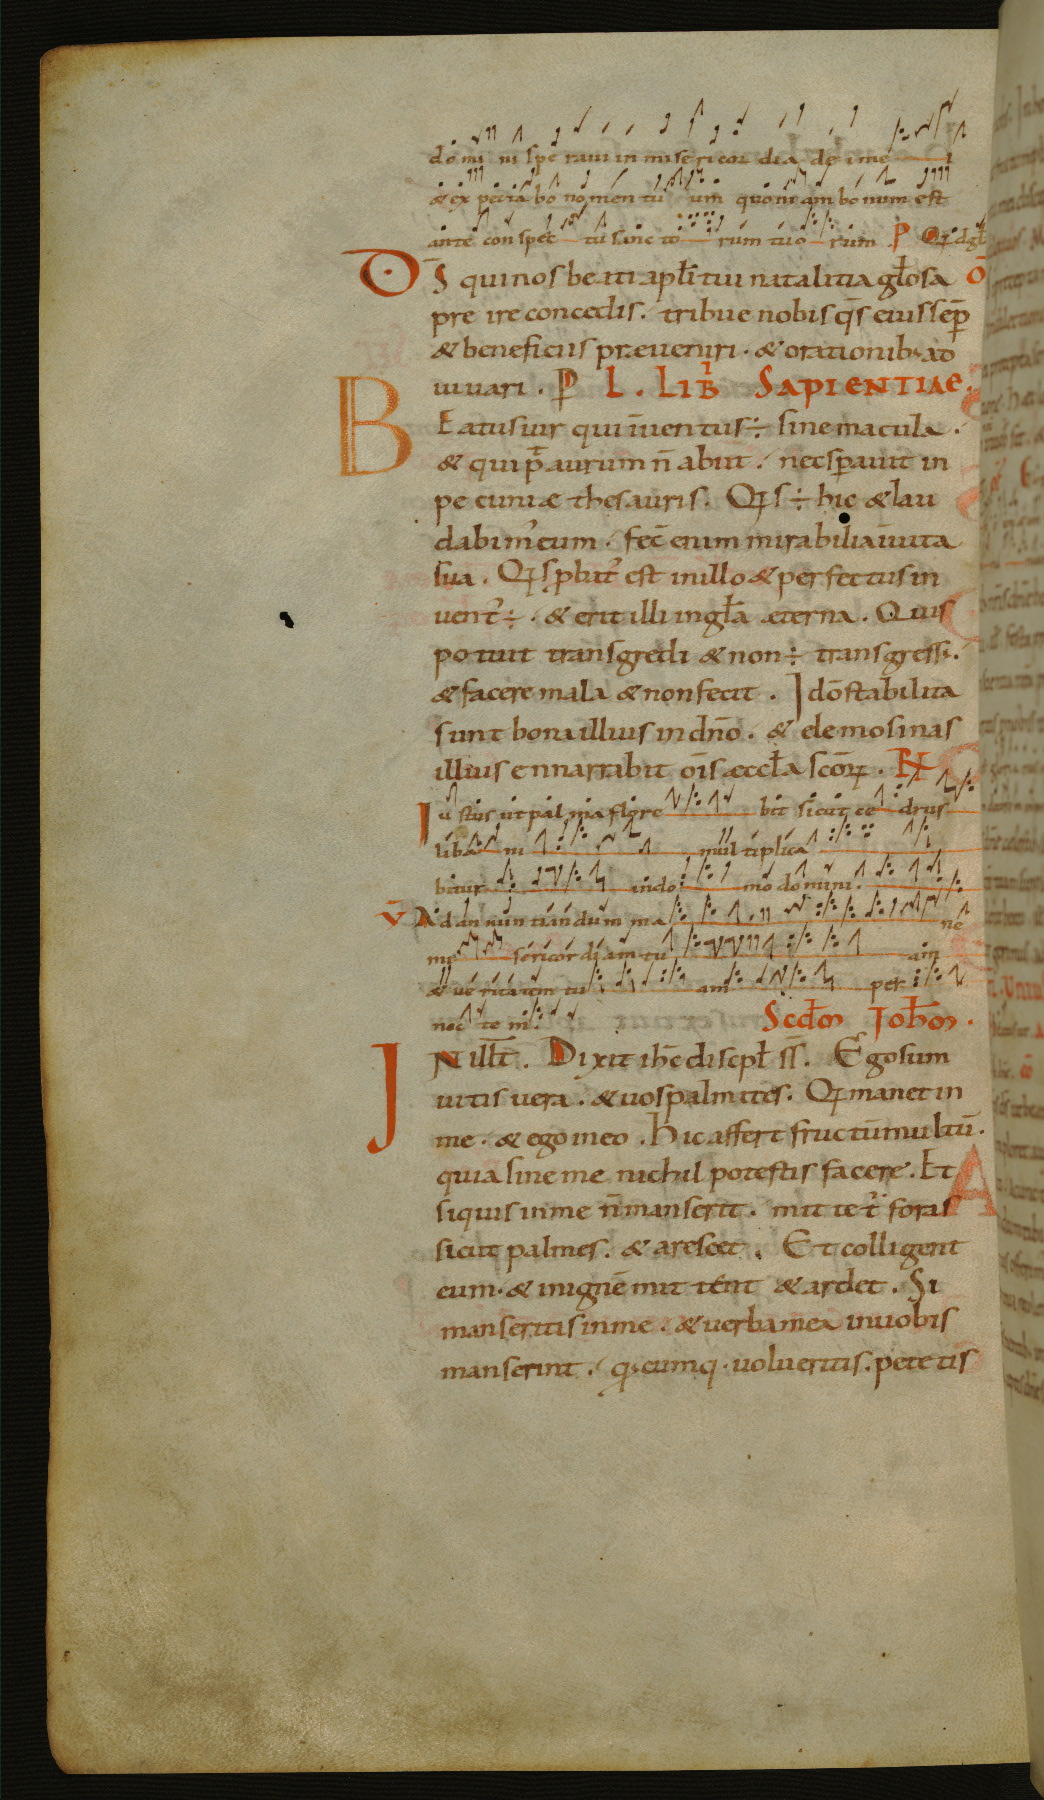 domini speraui in misericordia dei mei
& expectabo nomen tuum quoniam bonum est
ante conspectu sanctorum tuorum P Qd gł
D̄S qui nos beati apłi tui natalitia głosa Ō
preire concedis. tribue nobis q̄s eius sēp
& beneficiis preueniri. & orationib; ad
iuuari. P L. LIB̄ SAPIENTIAE.
BEatus uir qui īuentus ÷ sine macula.
& qui p̄ aurum n̄ abiit. nec sperauit in
pecuniæ thesauris. Qis ÷ hic & lau
dabim' eum. fec̄ enim mirabilia ī uita
sua. Qi sp̄but' est in illo & perfectus in
uent' ÷. & erit illi in głā æterna. Qui
potuit transgredi & non ÷ transgress.
& facere mala & non fecit. Idō stabilita
sunt bona illius in dn̄o. & elemosinas
illius enarrabit om̄is æccła sc̄orum. R̄
Iustus ut palma florebit sicut cedrus
libani multiplica
bitur indomo domini.
V̄ Ad annuntiandum mane
misericordiam tuam
& ueritatem tuam per
noctem. Scdm Iohm
IN illt. Dixit ih̄c discipł ss. Ego sum
uitis uera. & uos palmites. Qi manet in
me. & ego in eo. hic affert fructū multū.
quia sine me nichil potestis facere. Et
siquis in me n̄ manserit. mittet' foras
sicut palmes. & arescet. Et colligent
eum. & in ignē mittent & ardet. Si
manseritis in me. & uerba mea in uobis
manserint. q̄cumq; uolueritis. petetis